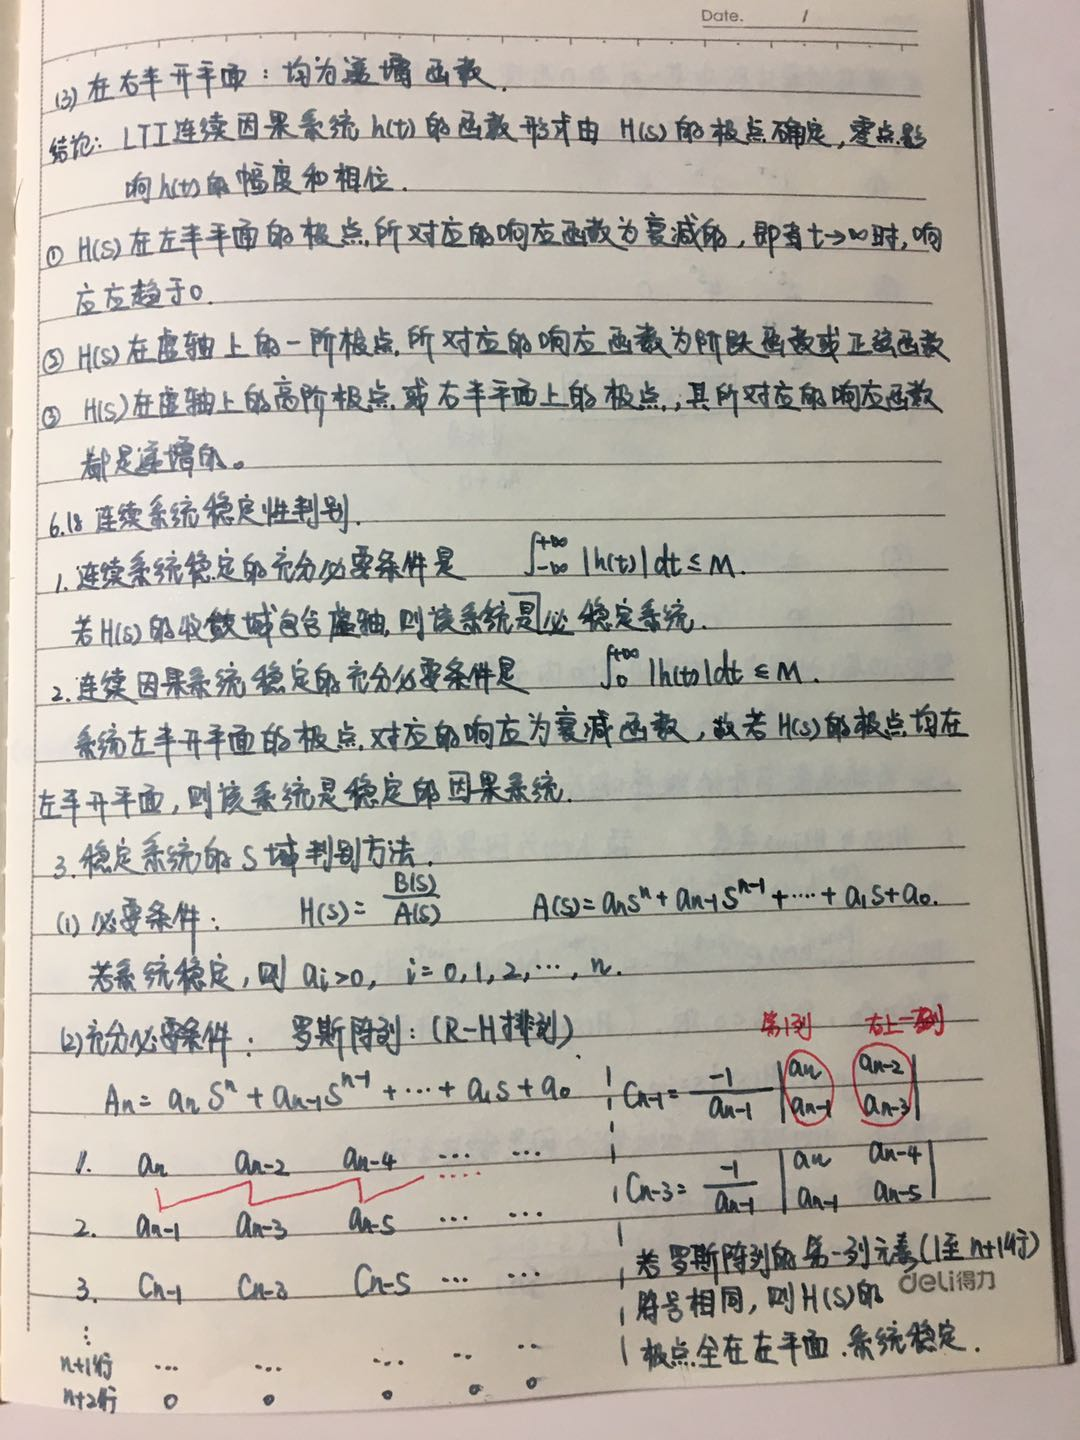 Date. 1
(3) 在右半开平面：均为递增函数.
结论：LTI连续因果系统h(t)的函数形式由H(s)的极点确定，零点影
响h(t)的幅度和相位.
① H(s)在左半平面的极点,所对应的响应函数为衰减的，即当t→∞时,响
应左趋于0.
② H(s)在虚轴上的一阶极点,所对应的响应函数为阶跃函数或正弦函数
③ H(s)在虚轴上的高阶极点或右半平面上的极点,其所对应的响应函数
都是递增的。
6.18 连续系统稳定性判别.
1. 连续系统稳定的充分必要条件是 ∫_{-∞}^{+∞} |h(t)| dt ≤ M.
若H(s)的收敛域包含虚轴,则该系统是必稳定系统.
2. 连续因果系统稳定的充分必要条件是 ∫_{0}^{+∞} |h(t)| dt ≤ M.
系统左半开平面的极点,对应的响应为衰减函数，故若H(s)的极点均在
左半开平面，则该系统是稳定的因果系统.
3. 稳定系统的S域判别方法.
(1) 必要条件： H(s) = B(s)/A(s) A(s) = aₙsⁿ + aₙ₋₁sⁿ⁻¹ + ⋯ + a₁s + a₀.
若系统稳定，则 aᵢ>0, i=0,1,2,⋯,n.
(2) 充分必要条件： 罗斯阵列：(R-H排列)
Aₙ = aₙSⁿ + aₙ₋₁Sⁿ⁻¹ + ⋯ + a₁S + a₀
1. aₙ aₙ₋₂ aₙ₋₄ ⋯ ⋯
2. aₙ₋₁ aₙ₋₃ aₙ₋₅ ⋯ ⋯
3. Cₙ₋₁ Cₙ₋₃ Cₙ₋₅ ⋯ ⋯
⋮
n+1行 ⋯ ⋯ ⋯ ⋯ ⋯
n+2行 0 0 0 0 0
第1列 右上一列
Cₙ₋₁ = -1/aₙ₋₁ | aₙ aₙ₋₂ |
| aₙ₋₁ aₙ₋₃ |
Cₙ₋₃ = -1/aₙ₋₁ | aₙ aₙ₋₄ |
| aₙ₋₁ aₙ₋₅ |
若罗斯阵列的第一列元素(1至n+1行)
符号相同，则H(s)的
极点全在左平面.系统稳定.
deli得力